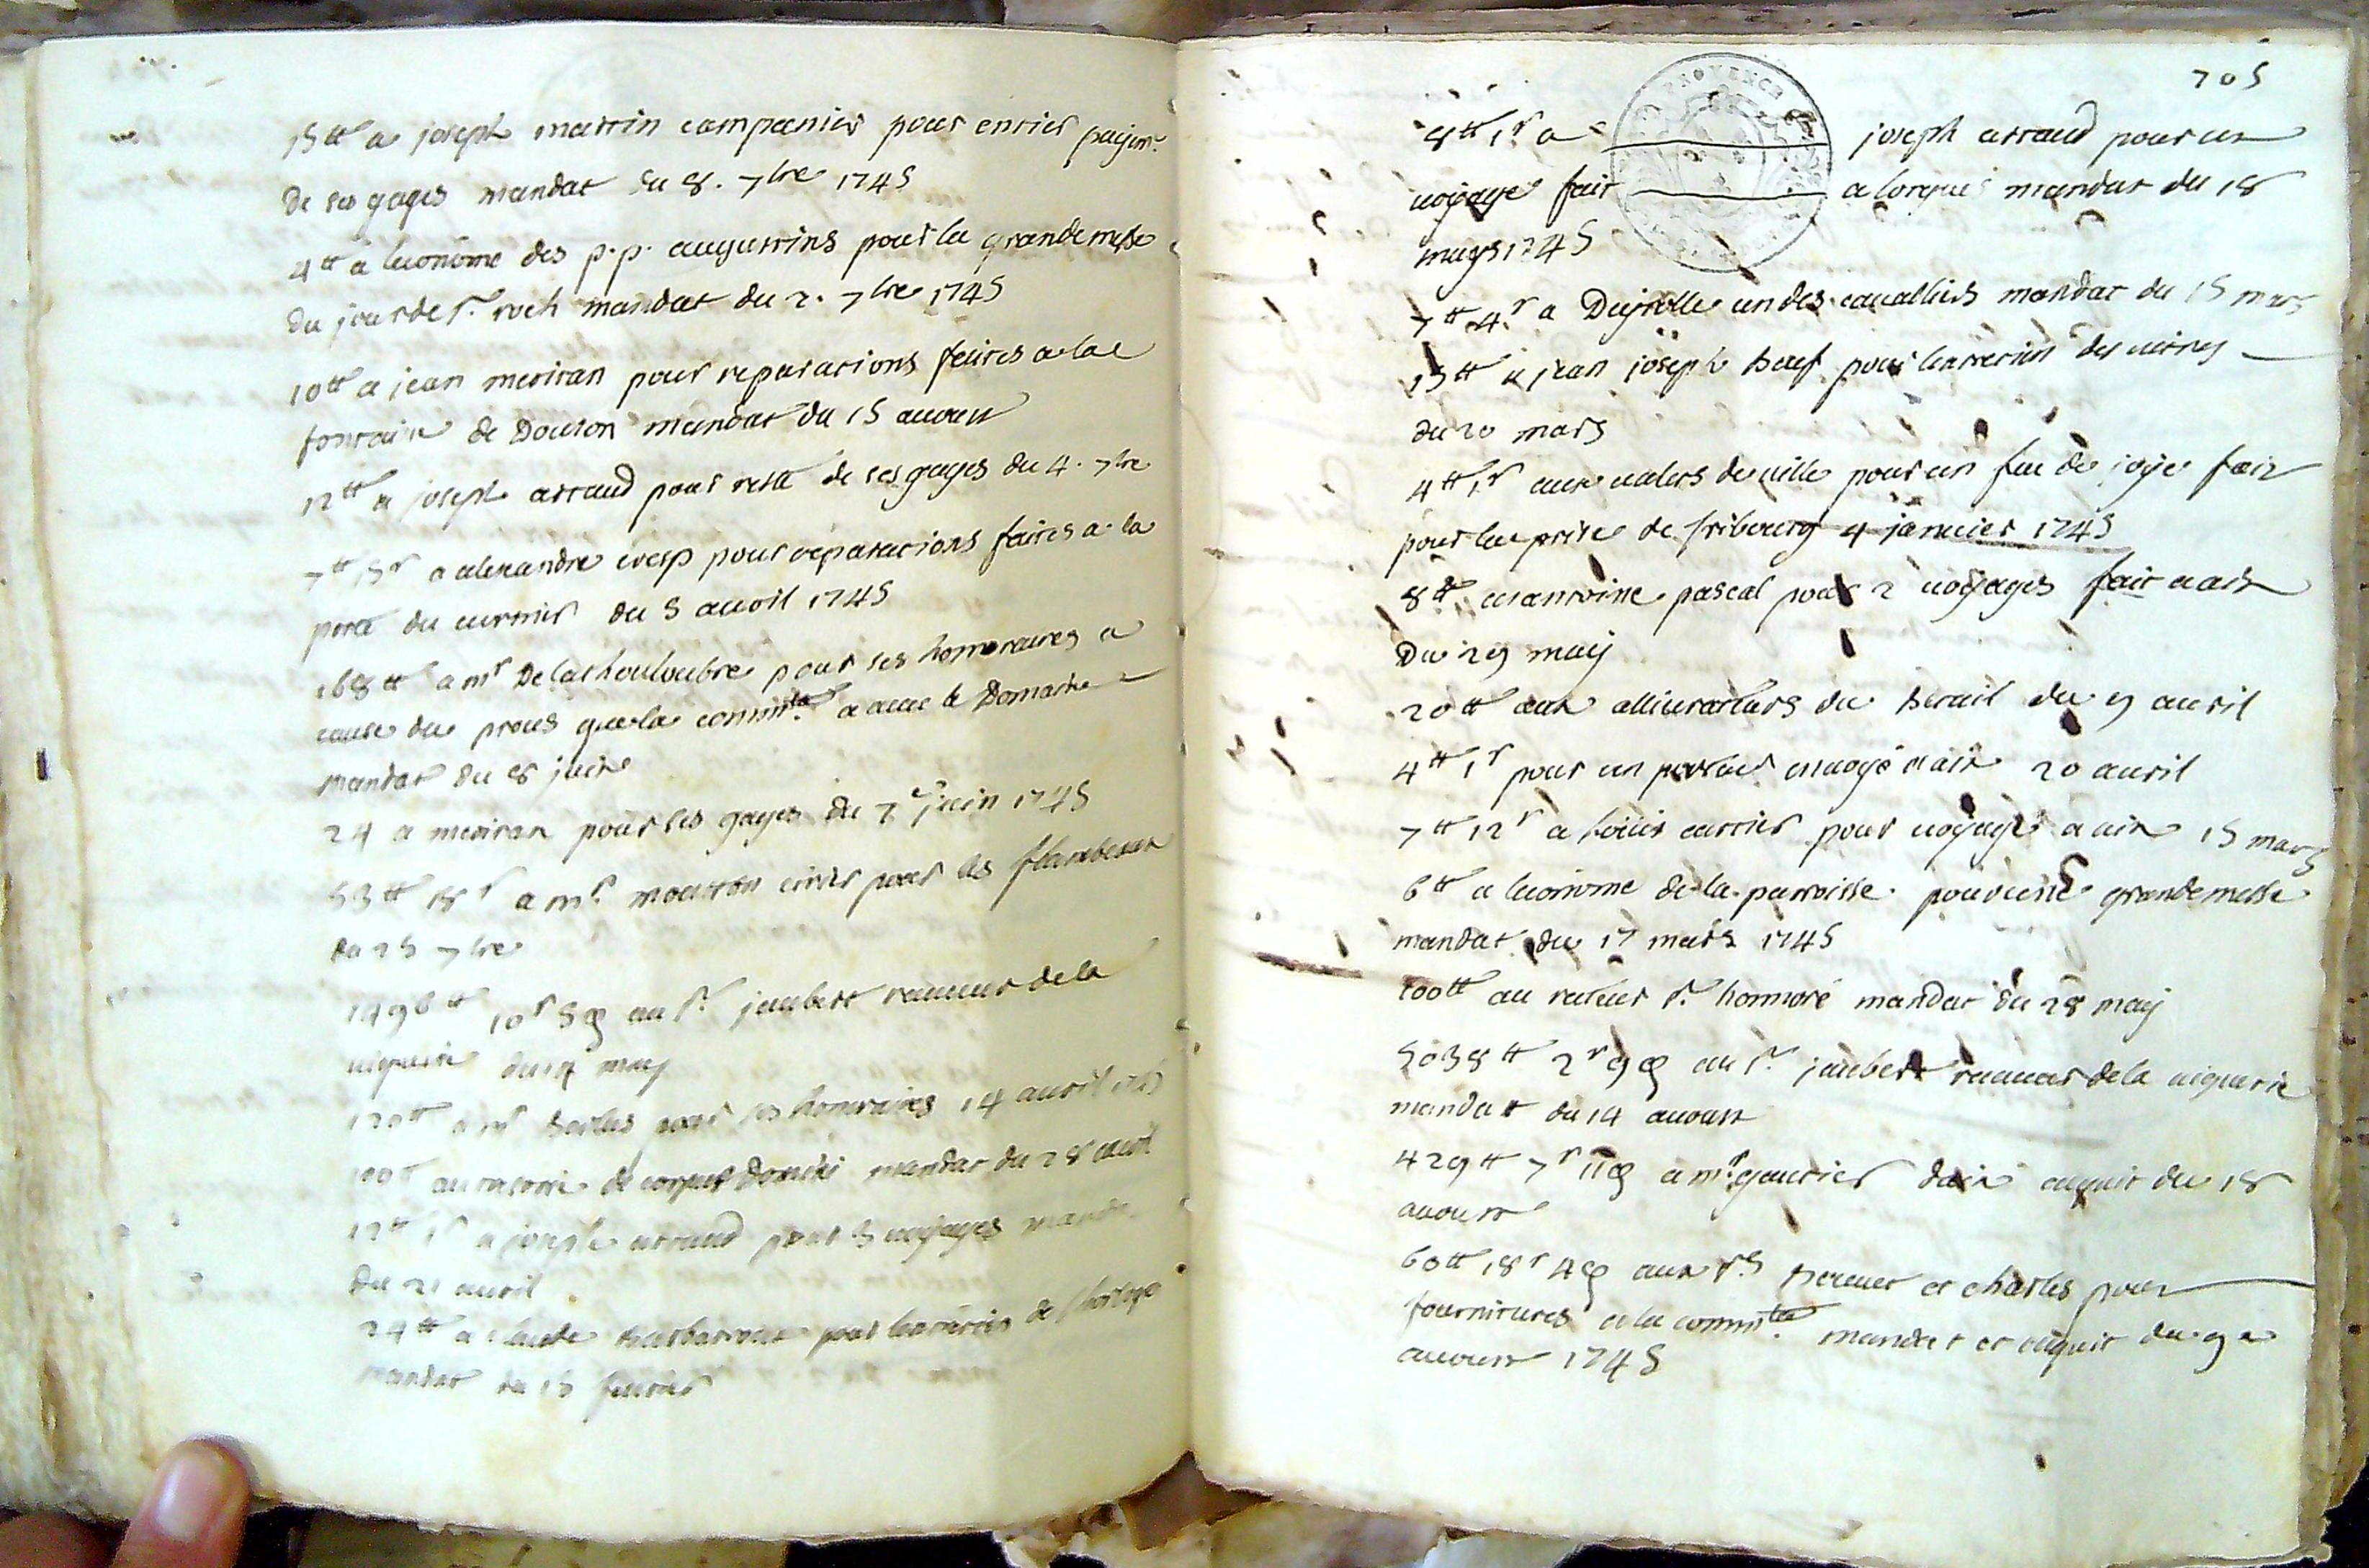 15₶ a joseph martin campanier pour entier payemt.
de ses gages mandat du 8. 7bre 1745
4₶ a leconome des p.p. augustins pour la grande messe
du jour de st. roch mandat du 2. 7bre 1745
10₶ a jean meriran pour reparations faites a la
fontaine de Douron mandat du 15 aoust
12₶ a joseph arraud pour reste de ses gages du 4. 7bre
7₶ 15s a alexandre evesp pour reparations faites a la
porte du du 5 avoil 1745
168₶ a mr Delachouloubre pour ses honoraires a
cause du proces que la commté. a avec le Domaine
mandat du 8 juin
24 a meriran pour ses gages du 2 juin 1745
53₶ 18s a mr. moutton cirier pour les flambeaux
du 25 7bre
1496₶ 10s 5d au sr. jaubert receveur de la
viguerie du 14 may
120₶ a mr pour ses honoraires 14 avril 1745
100₶ au de corpus Domini mandat du 28 avril
12₶ 1s a joseph arraud pour 3 voyages mandt.
du 21 avril
24₶ a claude barbarroux pour lentretien de lhorloge
mandat du 15 fevrier
705
8₶ 1s a joseph arraud pour un
voyage fait a lorgues mandat du 18
mays 1745
7₶ 4s a Deyrolle un des cavalliers mandat du 15 mars
15₶ a jean joseph beuf pour lentretien des vitres
du 20 mars
4₶ 1s aux valets de ville pour un feu de joye fait
pour la prise de fribourg 4 janvier 1745
8₶ a antoine pascal pour 2 voyages fait a aix
Du 29 may
20₶ aux allivrateurs du betail du 9 avril
4₶ 1s pour un porteur envoyé a aix 20 avril
7₶ 12s a louis carrier pour voyage a aix 15 mars
6₶ a leconome de la parroisse pour une grande messe
mandat du 17 mars 1745
100₶ au recteur st. honnoré mandat du 28 may
5038₶ 2s 9d au sr. jaubert receveur de la viguerie
mandat du 14 avoust
429₶ 7s 11d a mr. gautier daix aquit du 18
avoust
60₶ 18s 4d aux srs. et charles pour
fournitures a la commté. mandat et aquit du 9e
avoust 1745